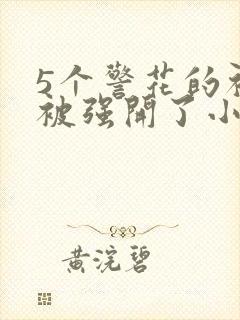 5个警花的被
被强开了小
黄浣碧